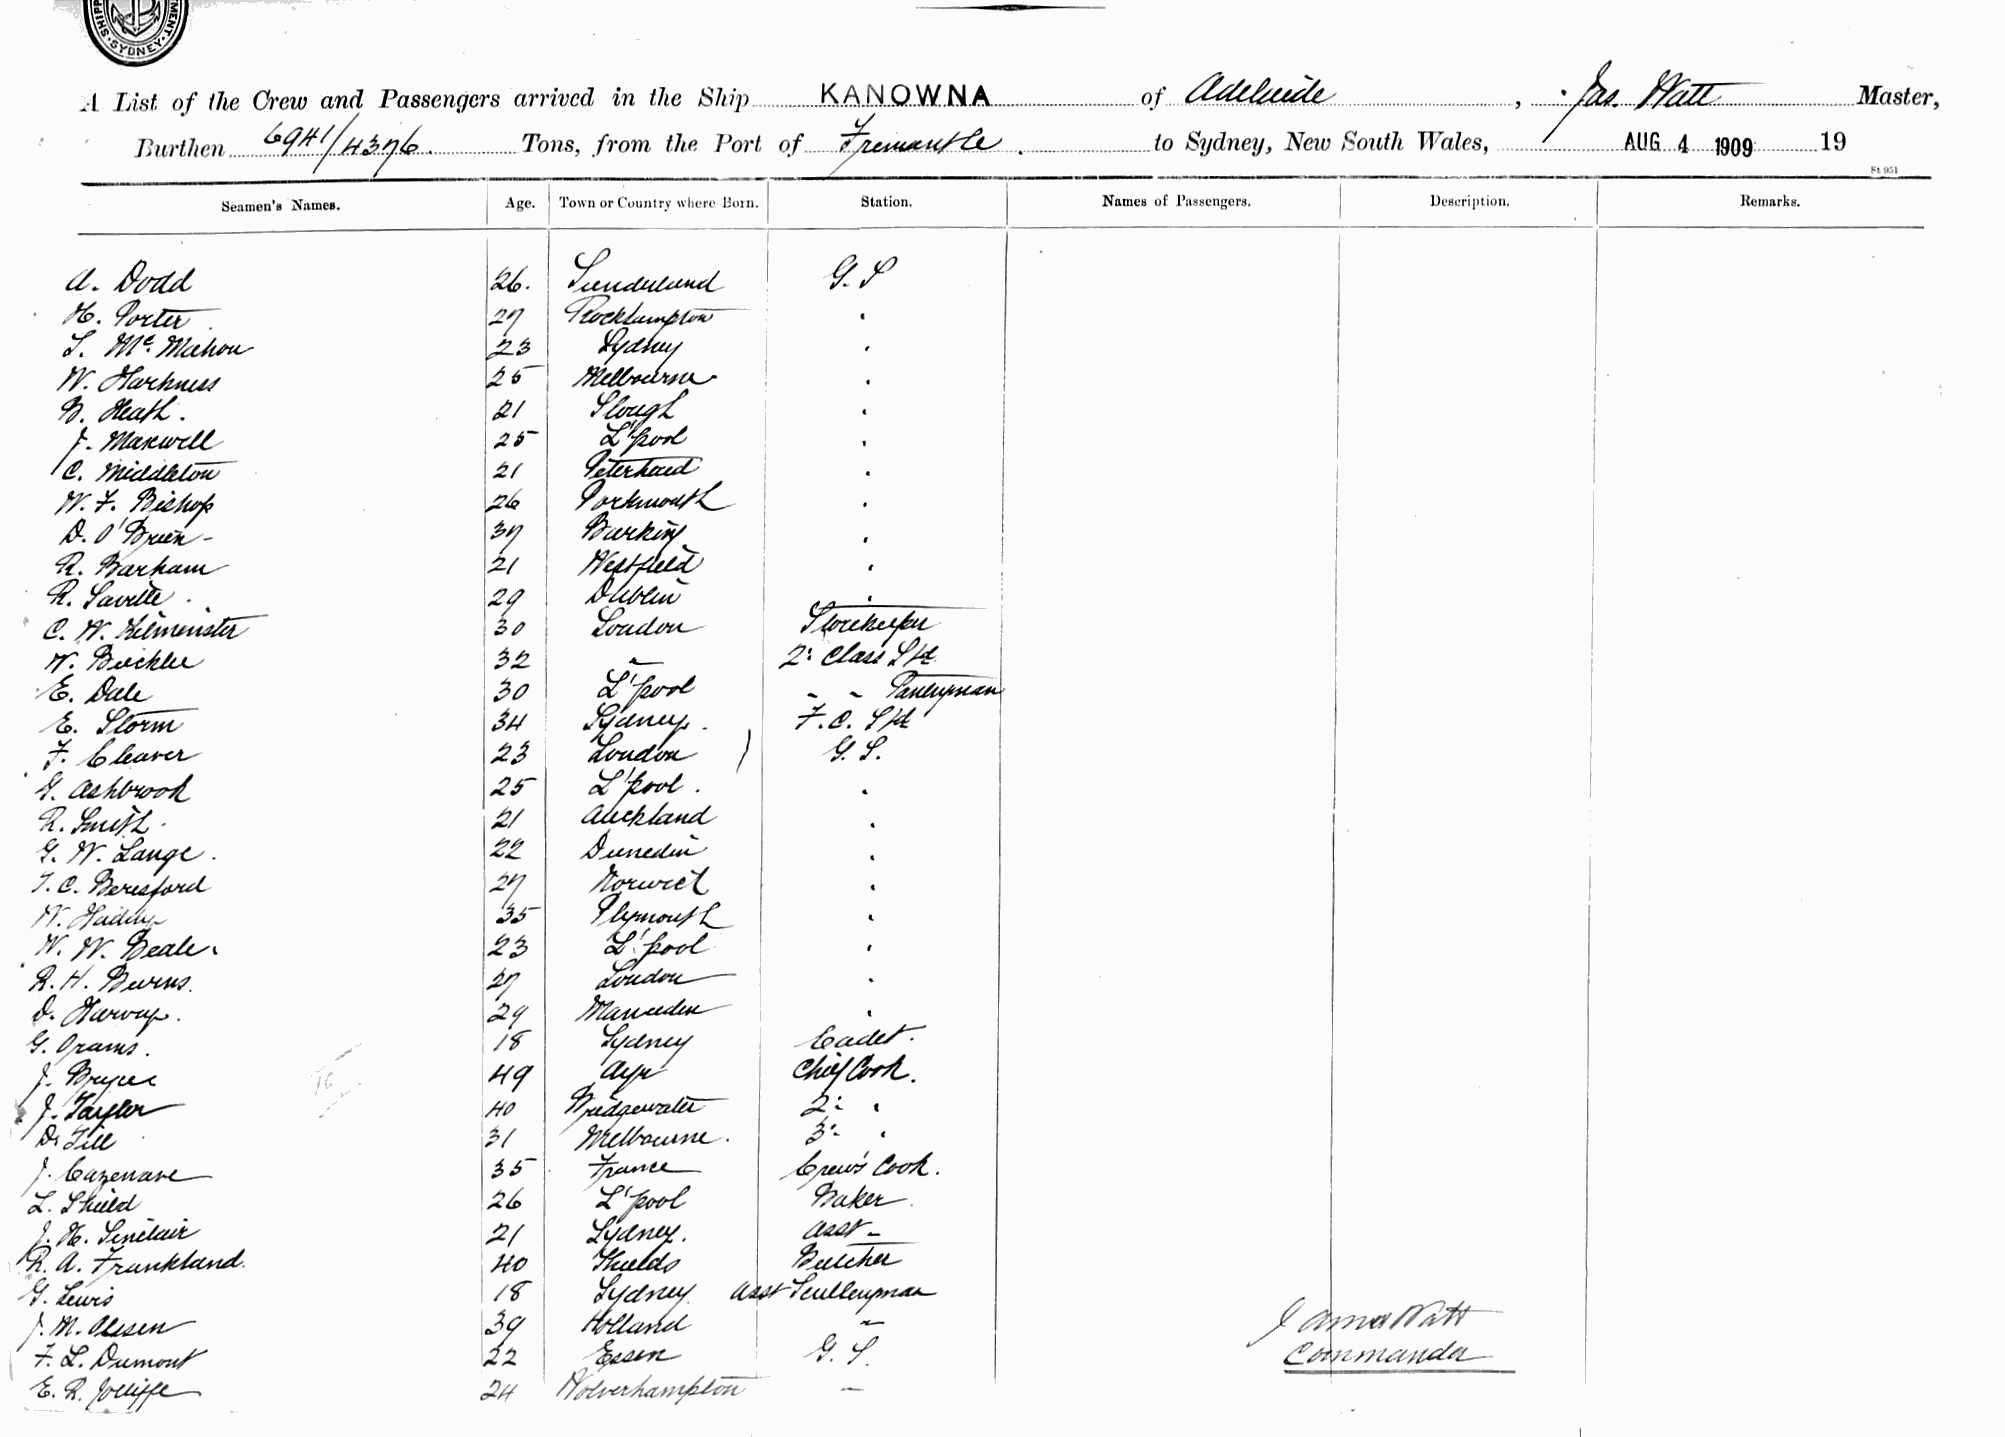 SHIPP MENT
· SYDNEY ·
A List of the Crew and Passengers arrived in the Ship KANOWNA of Adelaide, Jas. Watt Master,
Burthen 6941/4376. Tons, from the Port of Fremantle. to Sydney, New South Wales, AUG 4 1909 19
St 951
Seamen's Names. Age. Town or Country where Born. Station. Names of Passengers. Description. Remarks.
A. Dodd 26. Sunderland G. S
H. Porter 27 Rockhampton "
S. McMahon 23 Sydney "
W. Harkness 25 Melbourne "
B. Heath. 21 Slough "
J. Maxwell 25 L'pool "
C. Middleton 21 Peterhead "
W. F. Bishop 26 Portsmouth "
D. O'Brien - 37 Barking "
R. Barham 21 Westfield "
R. Saville 29 Dublin "
C. W. Kilmenister 30 London Storekeeper
W. Buckler 32 " 2: Class Std
E. Dale 30 L'pool " " Pantryman
E. Storm 34 Sydney. F. C. Std
F. Cleaver 23 London G. S.
G. Ashbrook 25 L'pool. "
R. Smith. 21 Auckland "
G. W. Lange. 22 Dunedin "
T. C. Beresford 27 Norwich "
W. 35 Plymouth "
W. W. Beale. 23 L'pool "
R. H. Burns. 27 London "
D. Harvey. 29 "
G. Orams. 18 Sydney Cadet.
J. Bryce 49 Ayr Chief Cook.
J. Taylor 40 Bridgewater 2: "
D. Till 31 Melbourne. 3: "
J. Cazenave 35 France Crew's Cook.
L. Shield 26 L'pool Baker.
J. H. Sinclair 21 Sydney. Asst "
R. A. Frankland. 40 Shields Butcher
G. Lewis 18 Sydney Asst Sculleryman
J. M. Olesen 39 Holland "
F. L. Dumont 22 Essen G. S.
E. R. Jolliffe 24 Wolverhampton "
James Watt
Commander